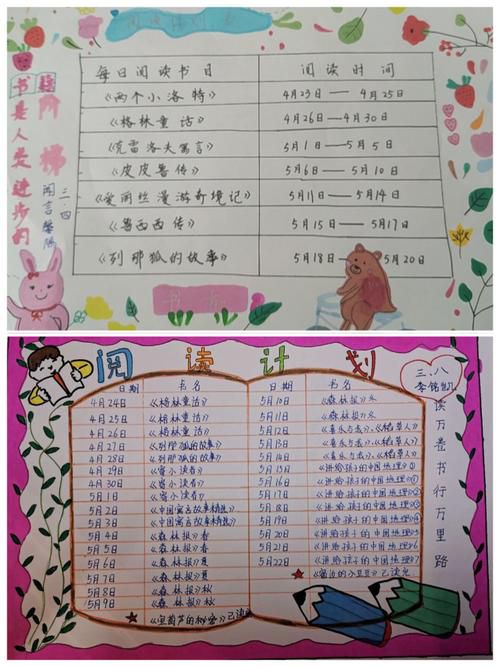 阅读计划
书是人类进步的阶梯
三.四
每日阅读书目 阅读时间
《两个小洛特》 4月23日——4月25日
《格林童话》 4月26日——4月30日
《克雷洛夫寓言》 5月1日——5月5日
《皮皮鲁传》 5月6日——5月10日
《爱丽丝漫游奇境记》 5月11日——5月14日
《鲁西西传》 5月15日——5月17日
《列那狐的故事》 5月18日——5月20日
阅读计划
三.八
李铭凯
读万卷书行万里路
日期 书名 日期 书名
4月24日 《格林童话》 5月10日 《森林报》冬
4月25日 《格林童话》 5月11日 《森林报》冬
4月26日 《格林童话》
4月27日 《列那狐的故事》
4月28日 《列那狐的故事》
4月29日 《寄小读者》
4月30日 《寄小读者》 5月16日 《讲给孩子的中国地理》①
5月1日 《寄小读者》 5月17日 《讲给孩子的中国地理》②
5月2日 《中国寓言故事精选》 5月18日 《讲给孩子的中国地理》③
5月3日 《中国寓言故事精选》 5月19日 《讲给孩子的中国地理》④
5月4日 《森林报》春 5月20日 《讲给孩子的中国地理》
5月5日 《森林报》春 5月21日 《讲给孩子的中国地理》
5月6日 《森林报》夏 5月22日 《讲给孩子的中国地理》
5月7日 《森林报》夏 《窗边的小豆豆》已读完
5月8日 《森林报》秋
5月9日 《森林报》秋
《宝葫芦的秘密》已读完